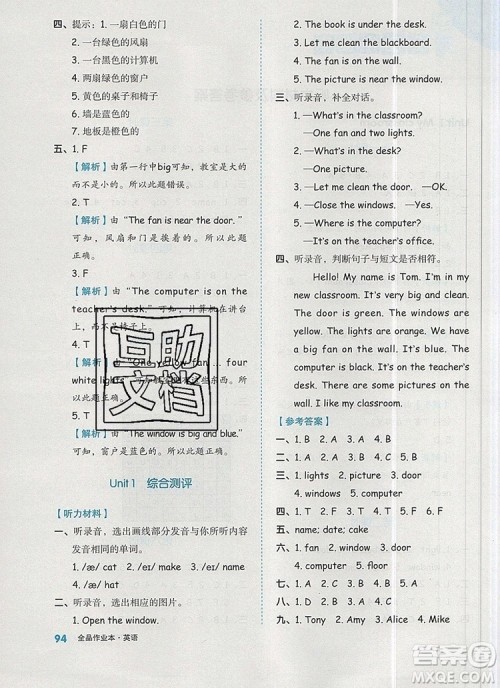 四、提示：1. 一扇白色的门
2. 一台绿色的风扇
3. 一台黑色的计算机
4. 两扇绿色的窗户
5. 黄色的桌子和椅子
6. 墙是蓝色的
7. 地板是橙色的
五、1. F
【解析】由第一行中big可知，教室是大的不是小的。所以此题错误。
2. T
【解析】由 “The fan is near the door. ”可知，风扇和门是挨着的。所以此题正确。
3. F
【解析】由 “The computer is on the teacher's desk.” 可知，计算机在讲台上，
4. T
【解析】由
white lights.
5. T
【解析】由 “The window is big and blue.”可知，窗户是蓝色的。所以此题正确。
Unit 1 综合测评
【听力材料】
一、听录音，选出画线部分发音与你所听内容发音相同的单词。
1. /æ/ cat 2. /eɪ/ make 3. /eɪ/ name
4. /æ/ hat
二、听录音，选出相应的图片。
1. Open the window.
94 全品作业本·英语
2. The book is on the teacher's desk.
3. Let me clean the blackboard.
4. The fan is on the wall.
5. The picture is near the window.
三、听录音，补全对话。
1. —What's in the classroom?
—One fan and two lights.
2. —What's in the desk?
—An English book.
3. —Open the door. —OK.
4. —Close the window. —Yes.
5. —Where is the computer?
—It's near the window.
四、听录音，判断句子与短文是否相符。
Hello! My name is Tom. I'm in my
new classroom. It's very big and clean.
The door is green. The windows are
yellow. The lights are orange. We have
a big fan on the wall. It's blue. The
computer is black. It's on the teacher's
desk. There are some pictures on the
wall. I like my classroom.
【参考答案】
一、1. B 2. A 3. A 4. B
二、1. B 2. A 3. B 4. C 5. C
三、1. lights 2. picture 3. door
4. window 5. computer
四、1. F 2. T 3. F 4. T 5. T
五、name; date; cake
六、1. fan 2. window 3. door
4. computer 5. floor 6. light
七、1. B 2. A 3. B 4. C 5. A
八、1. D 2. C 3. B 4. A
九、1. Tom 2. Amy 3. Alice 4. Mike
互助文档
答案圈
MXQE.COM